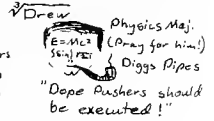 ∛Drew
Physics Maj.
(Pray for him!)
E=Mc²
Diggs Pipes
"Dope Pushers should
be executed!"